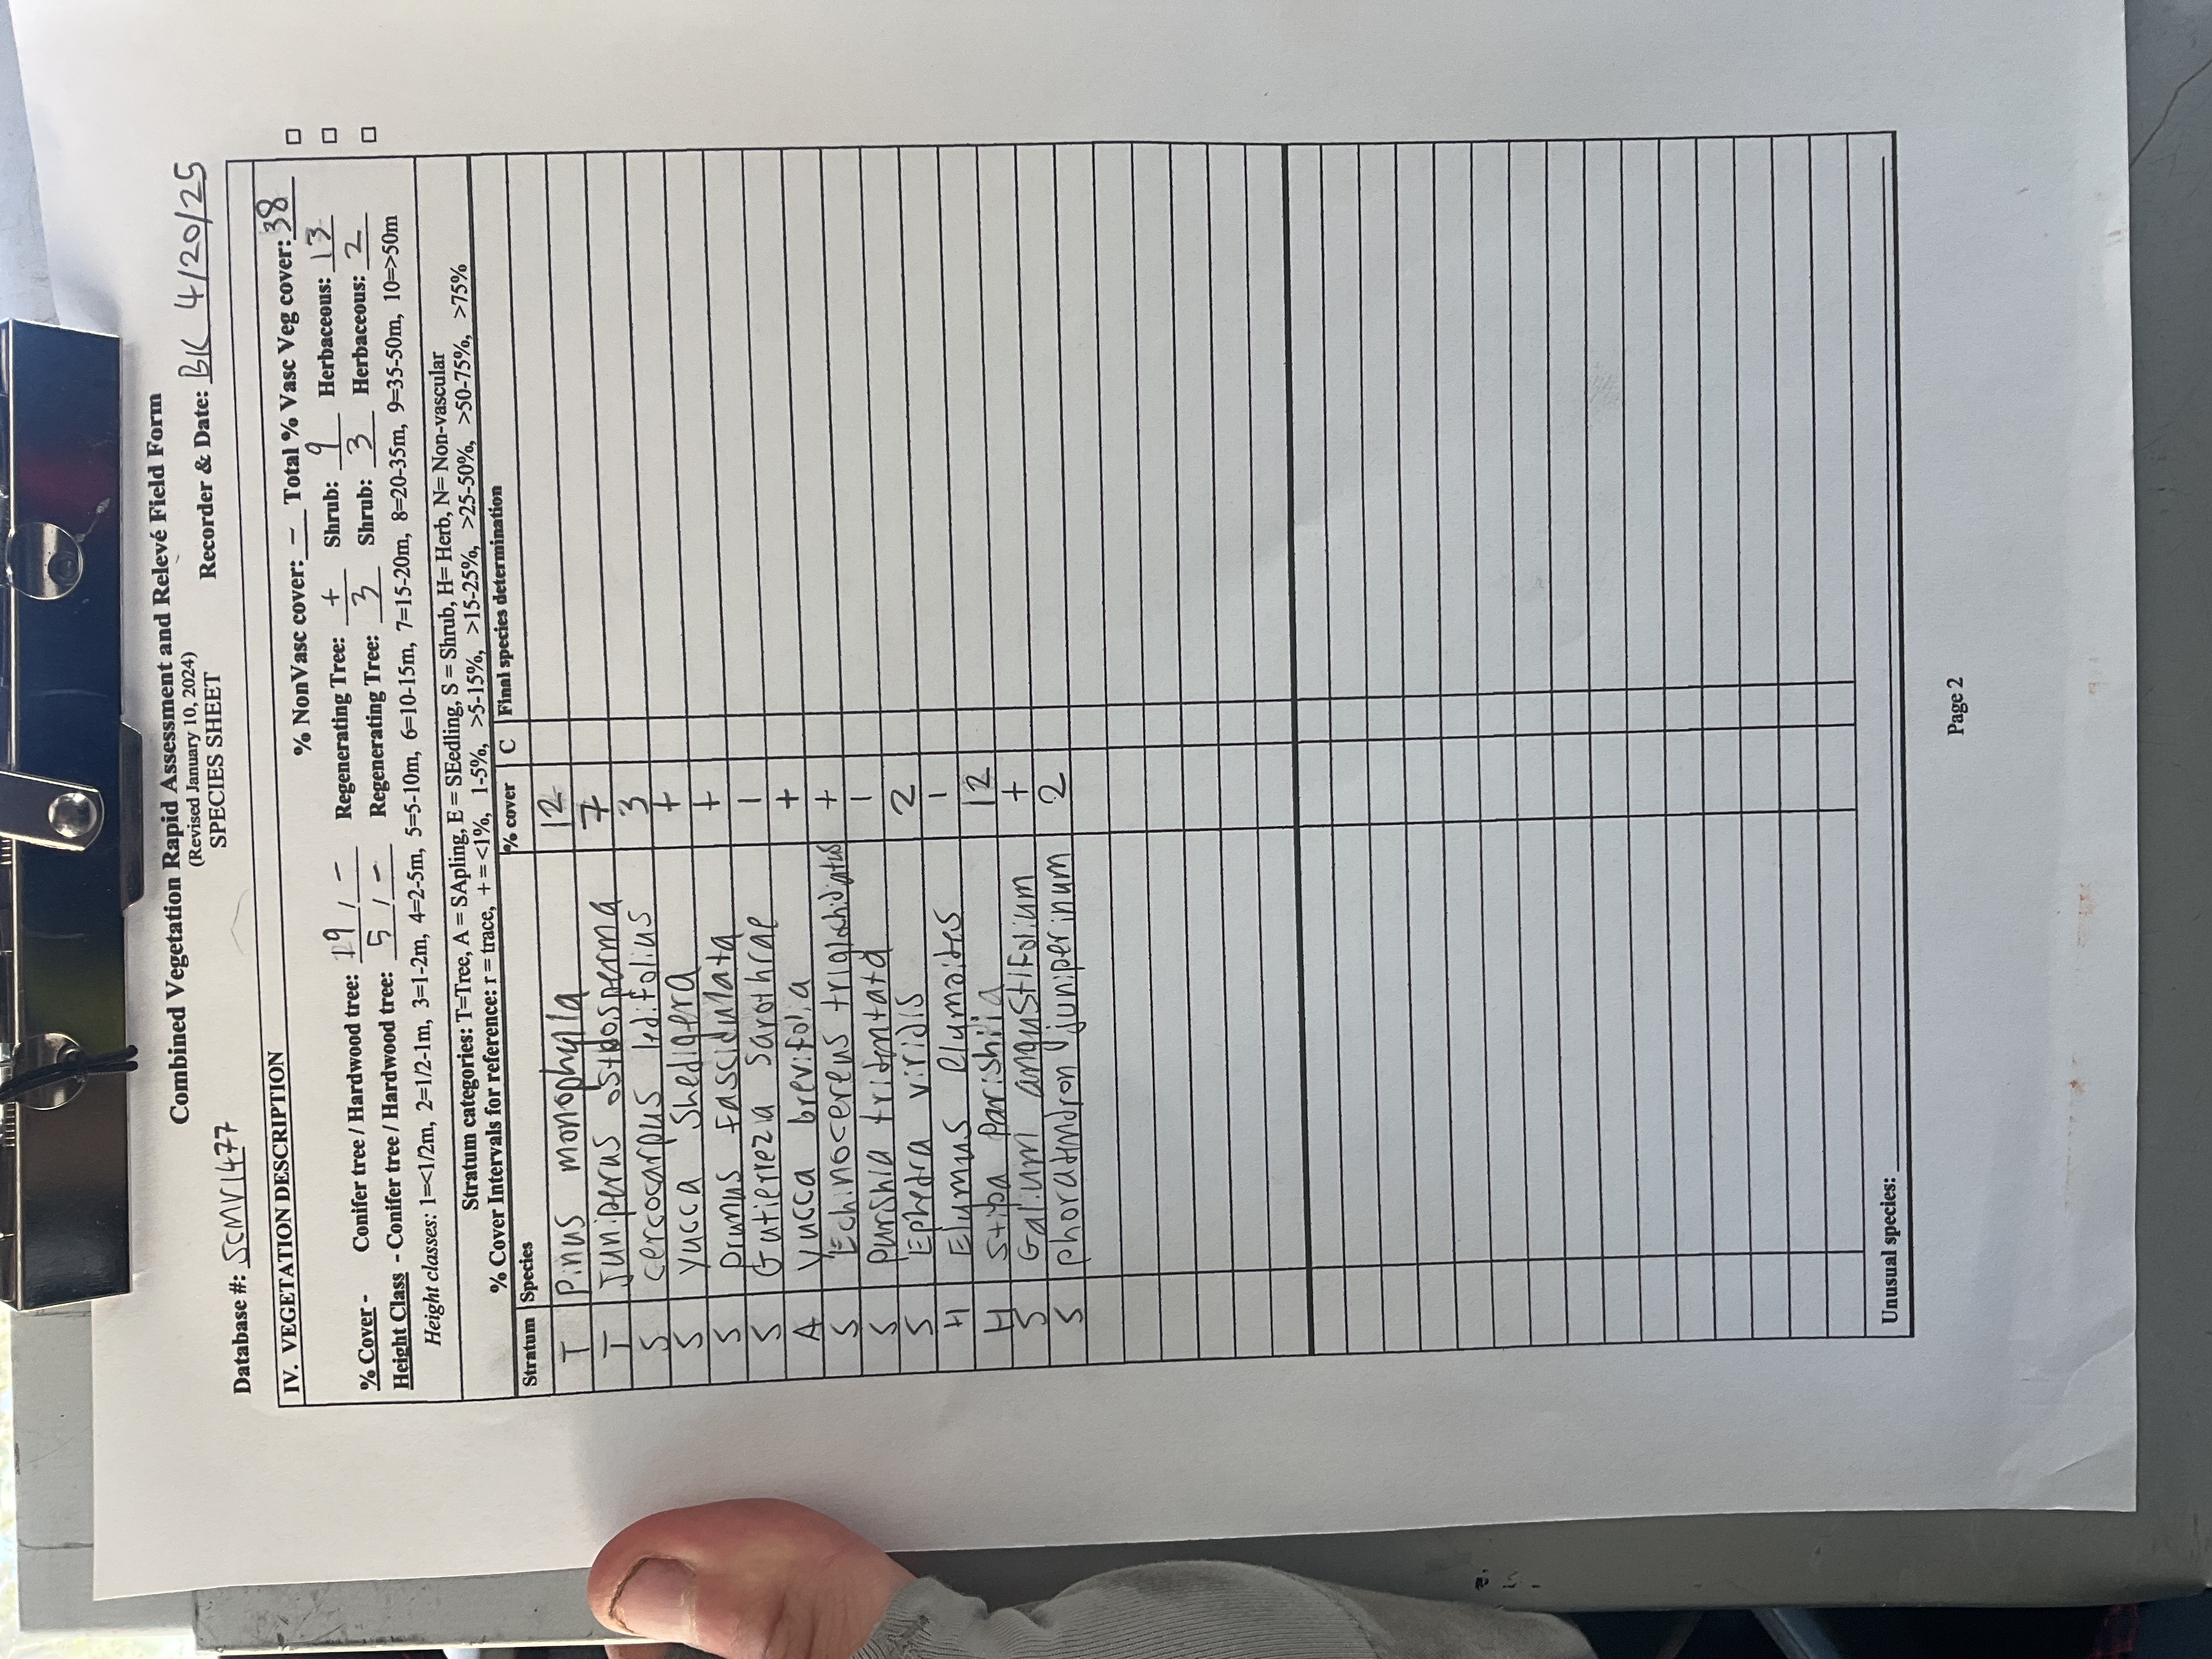 Combined Vegetation Rapid Assessment and Relevé Field Form
(Revised January 10, 2024)
SPECIES SHEET
Database #: SCMV1477 Recorder & Date: BK 4/20/25
IV. VEGETATION DESCRIPTION
% NonVasc cover: - Total % Vasc Veg cover: 38
% Cover - Conifer tree / Hardwood tree: 19 / - Regenerating Tree: + Shrub: 9 Herbaceous: 13
Height Class - Conifer tree / Hardwood tree: 5 / - Regenerating Tree: 3 Shrub: 3 Herbaceous: 2
Height classes: 1=<1/2m, 2=1/2-1m, 3=1-2m, 4=2-5m, 5=5-10m, 6=10-15m, 7=15-20m, 8=20-35m, 9=35-50m, 10=>50m
Stratum categories: T=Tree, A = SApling, E = SEedling, S = Shrub, H= Herb, N= Non-vascular
% Cover Intervals for reference: r = trace, + = <1%, 1-5%, >5-15%, >15-25%, >25-50%, >50-75%, >75%
Stratum Species % cover C Final species determination
T Pinus monophylla 12
T Juniperus osteosperma 7
S cercocarpus ledifolius 3
S Yucca Shedigera +
S prunus fascidulata +
S Gutierrezia sarothrae 1
A Yucca brevifolia +
S Echinocereus triglochidiatus +
S purshia tridentata 1
S Ephedra viridis 2
H Elymus elymoides 1
H Stipa Parishiia 12
S Galium angustifolium +
S phoradendron juniperinum 2
Unusual species:
Page 2